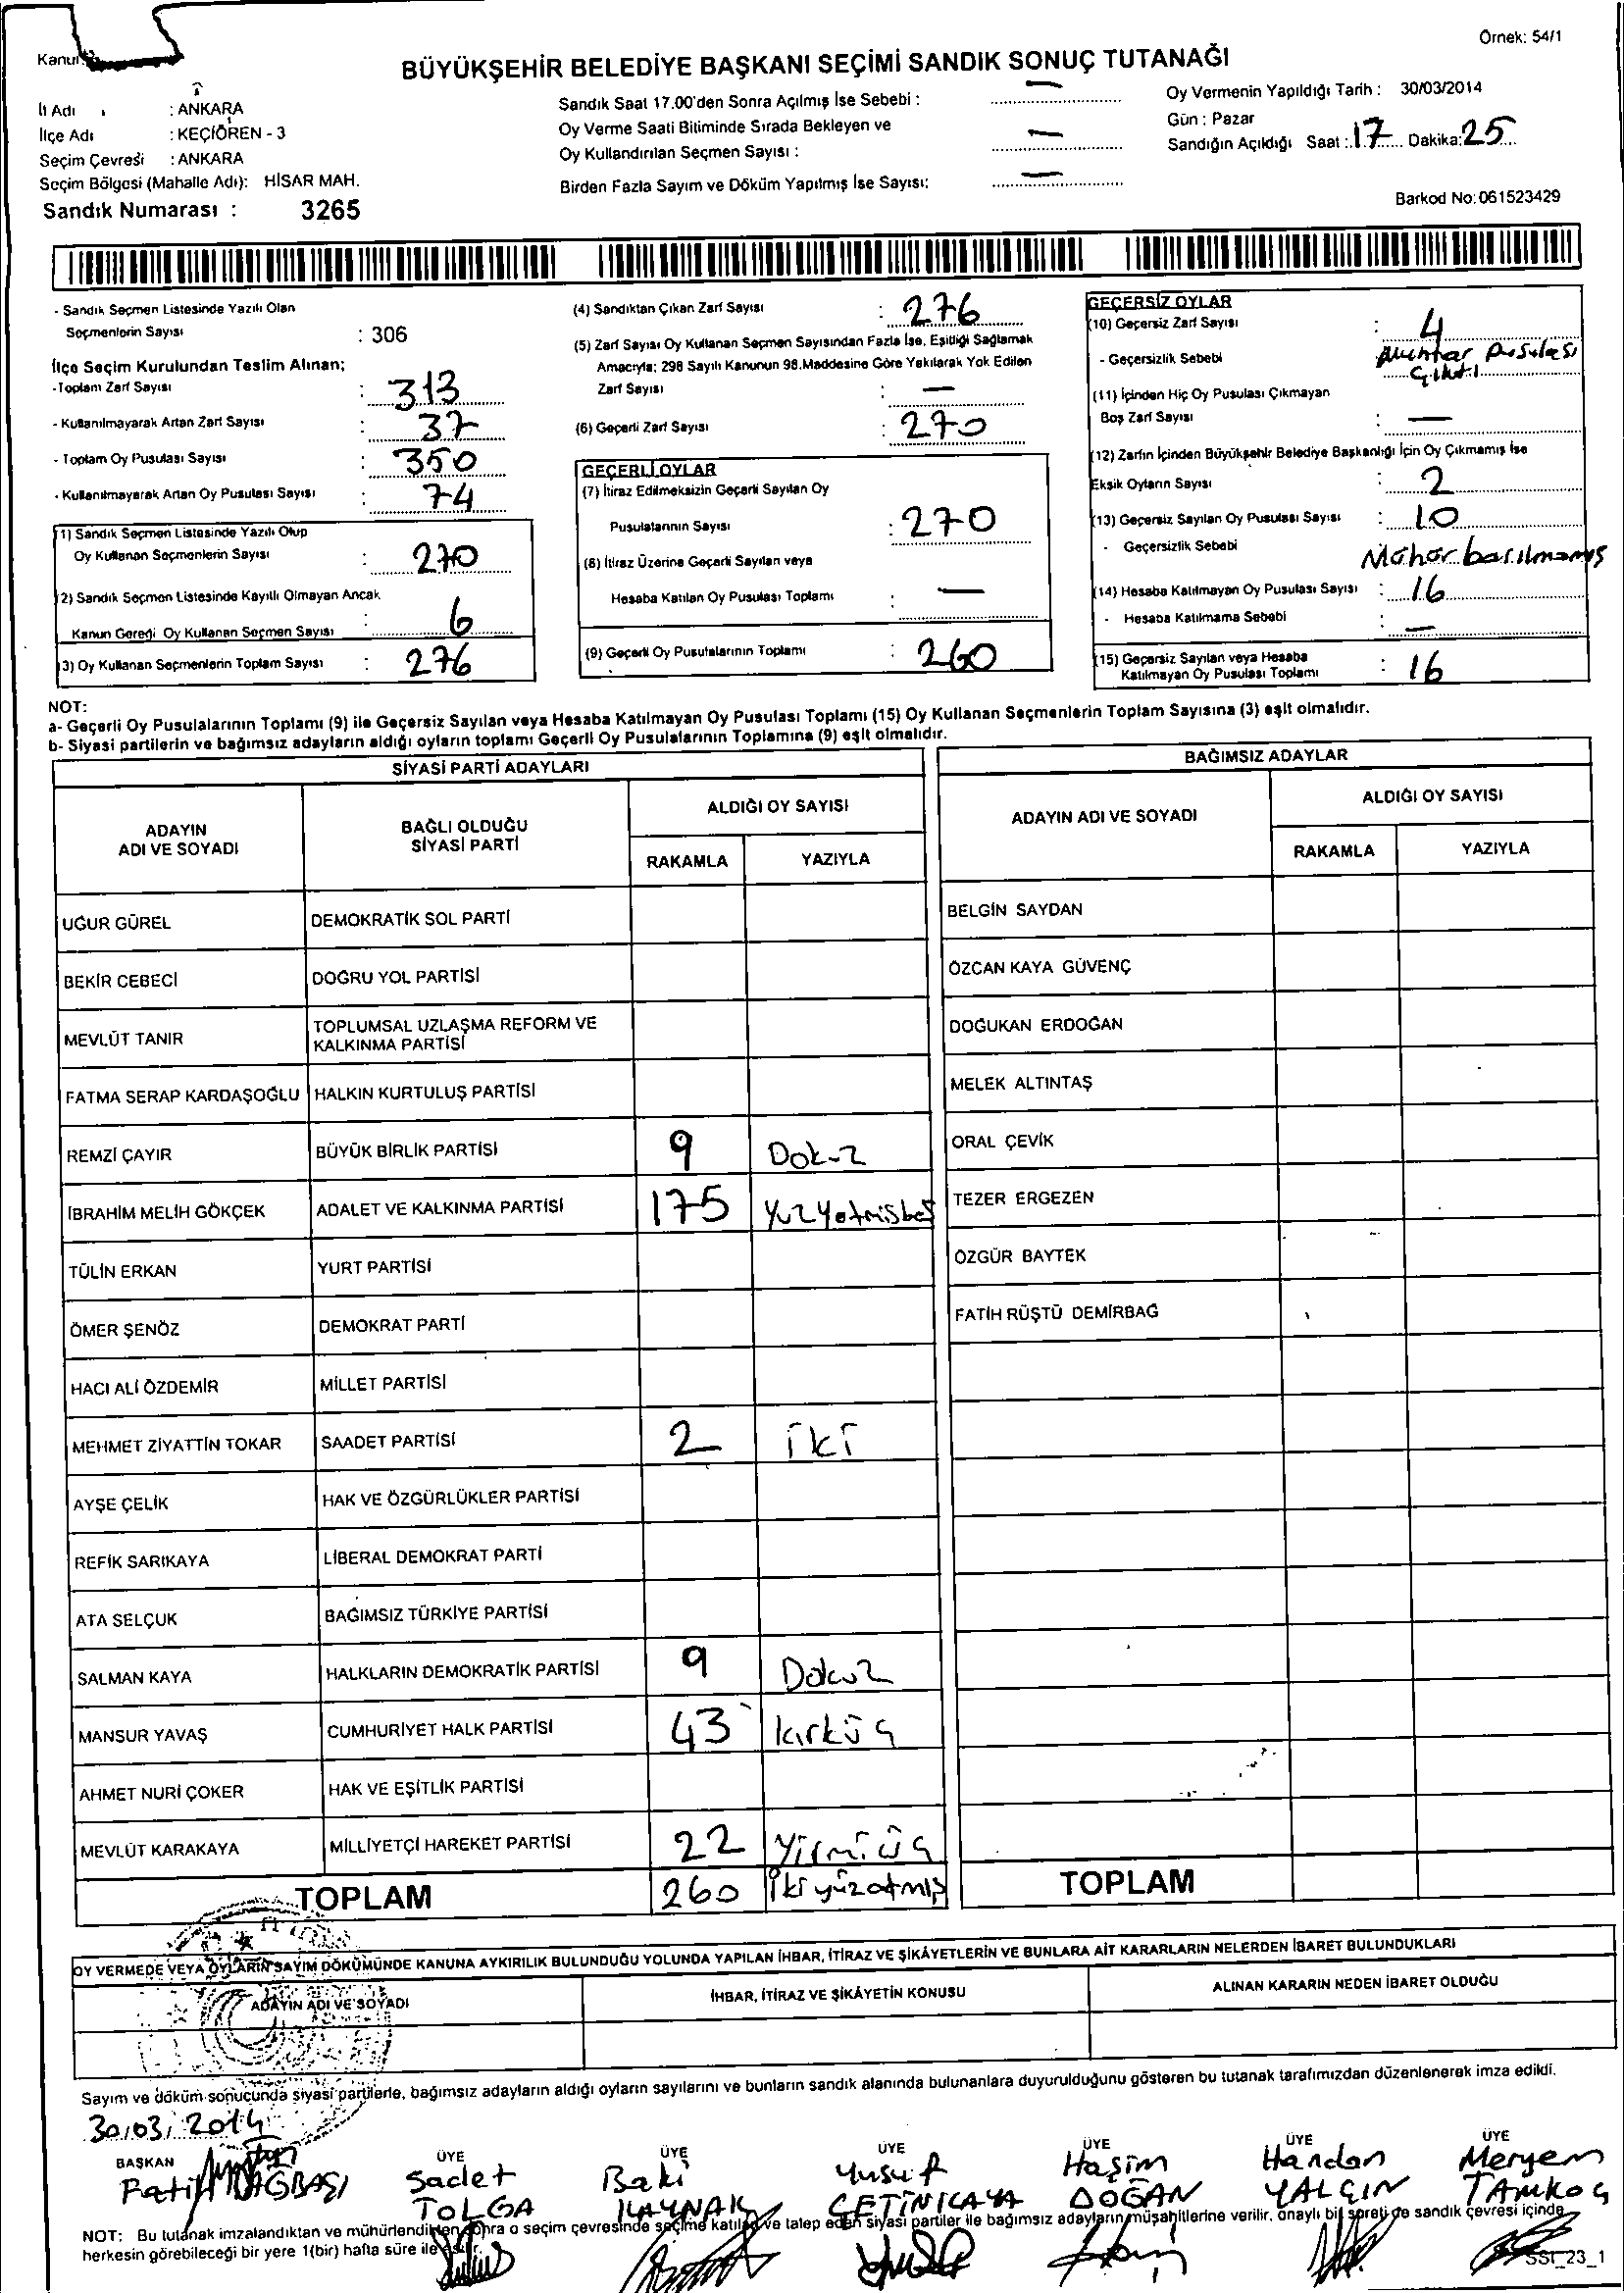 Örnek: 54/1
BÜYÜKŞEHİR BELEDİYE BAŞKANI SEÇİMİ SANDIK SONUÇ TUTANAĞI
İl Adı : ANKARA
İlçe Adı : KEÇİÖREN - 3
Seçim Çevresi : ANKARA
Seçim Bölgesi (Mahalle Adı): HİSAR MAH.
Sandık Numarası : 3265
Sandık Saat 17.00'den Sonra Açılmış İse Sebebi : —
Oy Verme Saati Bitiminde Sırada Bekleyen ve
Oy Kullandırılan Seçmen Sayısı : —
Birden Fazla Sayım ve Döküm Yapılmış İse Sayısı: —
Oy Vermenin Yapıldığı Tarih : 30/03/2014
Gün : Pazar
Sandığın Açıldığı Saat : 17 Dakika: 25
Barkod No: 061523429
- Sandık Seçmen Listesinde Yazılı Olan
Seçmenlerin Sayısı : 306
İlçe Seçim Kurulundan Teslim Alınan;
-Toplam Zarf Sayısı : 313
- Kullanılmayarak Artan Zarf Sayısı : 37
- Toplam Oy Pusulası Sayısı : 350
- Kullanılmayarak Artan Oy Pusulası Sayısı : 74
(1) Sandık Seçmen Listesinde Yazılı Olup
Oy Kullanan Seçmenlerin Sayısı : 270
(2) Sandık Seçmen Listesinde Kayıtlı Olmayan Ancak
Kanun Gereği Oy Kullanan Seçmen Sayısı : 6
(3) Oy Kullanan Seçmenlerin Toplam Sayısı : 276
(4) Sandıktan Çıkan Zarf Sayısı : 276
(5) Zarf Sayısı Oy Kullanan Seçmen Sayısından Fazla İse, Eşitliği Sağlamak
Amacıyla; 298 Sayılı Kanunun 98.Maddesine Göre Yakılarak Yok Edilen
Zarf Sayısı : —
(6) Geçerli Zarf Sayısı : 270
GEÇERLİ OYLAR
(7) İtiraz Edilmeksizin Geçerli Sayılan Oy
Pusulalarının Sayısı : 270
(8) İtiraz Üzerine Geçerli Sayılan veya
Hesaba Katılan Oy Pusulası Toplamı : —
(9) Geçerli Oy Pusulalarının Toplamı : 260
GEÇERSİZ OYLAR
(10) Geçersiz Zarf Sayısı : 4
- Geçersizlik Sebebi Muhtar Pusulası
Çıktı
(11) İçinden Hiç Oy Pusulası Çıkmayan
Boş Zarf Sayısı : —
(12) Zarfın İçinden Büyükşehir Belediye Başkanlığı İçin Oy Çıkmamış İse
Eksik Oyların Sayısı : 2
(13) Geçersiz Sayılan Oy Pusulası Sayısı : 10
- Geçersizlik Sebebi Mühür basılmamış
(14) Hesaba Katılmayan Oy Pusulası Sayısı : 16
- Hesaba Katılmama Sebebi : —
(15) Geçersiz Sayılan veya Hesaba
Katılmayan Oy Pusulası Toplamı : 16
NOT:
a- Geçerli Oy Pusulalarının Toplamı (9) ile Geçersiz Sayılan veya Hesaba Katılmayan Oy Pusulası Toplamı (15) Oy Kullanan Seçmenlerin Toplam Sayısına (3) eşit olmalıdır.
b- Siyasi partilerin ve bağımsız adayların aldığı oyların toplamı Geçerli Oy Pusulalarının Toplamına (9) eşit olmalıdır.
SİYASİ PARTİ ADAYLARI
ADAYIN ADI VE SOYADI BAĞLI OLDUĞU SİYASİ PARTİ ALDIĞI OY SAYISI
RAKAMLA YAZIYLA
UĞUR GÜREL DEMOKRATİK SOL PARTİ
BEKİR CEBECİ DOĞRU YOL PARTİSİ
MEVLÜT TANIR TOPLUMSAL UZLAŞMA REFORM VE KALKINMA PARTİSİ
FATMA SERAP KARDAŞOĞLU HALKIN KURTULUŞ PARTİSİ
REMZİ ÇAYIR BÜYÜK BİRLİK PARTİSİ 9 Dokuz
İBRAHİM MELİH GÖKÇEK ADALET VE KALKINMA PARTİSİ 175 Yüzyetmişbeş
TÜLİN ERKAN YURT PARTİSİ
ÖMER ŞENÖZ DEMOKRAT PARTİ
HACI ALİ ÖZDEMİR MİLLET PARTİSİ
MEHMET ZİYATTİN TOKAR SAADET PARTİSİ 2 iki
AYŞE ÇELİK HAK VE ÖZGÜRLÜKLER PARTİSİ
REFİK SARIKAYA LİBERAL DEMOKRAT PARTİ
ATA SELÇUK BAĞIMSIZ TÜRKİYE PARTİSİ
SALMAN KAYA HALKLARIN DEMOKRATİK PARTİSİ 9 Dokuz
MANSUR YAVAŞ CUMHURİYET HALK PARTİSİ 43 kırküç
AHMET NURİ ÇOKER HAK VE EŞİTLİK PARTİSİ
MEVLÜT KARAKAYA MİLLİYETÇİ HAREKET PARTİSİ 22 Yirmiüç
TOPLAM 260 İkiyüzatmış
BAĞIMSIZ ADAYLAR
ADAYIN ADI VE SOYADI ALDIĞI OY SAYISI
RAKAMLA YAZIYLA
BELGİN SAYDAN
ÖZCAN KAYA GÜVENÇ
DOĞUKAN ERDOĞAN
MELEK ALTINTAŞ
ORAL ÇEVİK
TEZER ERGEZEN
ÖZGÜR BAYTEK
FATİH RÜŞTÜ DEMİRBAĞ
TOPLAM
OY VERMEDE VEYA OYLARIN SAYIM DÖKÜMÜNDE KANUNA AYKIRILIK BULUNDUĞU YOLUNDA YAPILAN İHBAR, İTİRAZ VE ŞİKÂYETLERİN VE BUNLARA AİT KARARLARIN NELERDEN İBARET BULUNDUKLARI
ADAYIN ADI VE SOYADI İHBAR, İTİRAZ VE ŞİKÂYETİN KONUSU ALINAN KARARIN NEDEN İBARET OLDUĞU
Sayım ve döküm sonucunda siyasi partilerle, bağımsız adayların aldığı oyların sayılarını ve bunların sandık alanında bulunanlara duyurulduğunu gösteren bu tutanak tarafımızdan düzenlenerek imza edildi.
30.03.2014
BAŞKAN ÜYE ÜYE ÜYE ÜYE ÜYE ÜYE
Fatih Sadet Baki Yusuf Haşim Handan Meryem
TOLGA KAYNAK ÇETİNKAYA DOĞAN YALÇIN TAMKOÇ
NOT: Bu tutanak imzalandıktan ve mühürlendikten sonra o seçim çevresinde seçime katılan ve talep eden siyasi partiler ile bağımsız adayların müşahitlerine verilir, onaylı bir sureti de sandık çevresi içinde
herkesin görebileceği bir yere 1(bir) hafta süre ile asılır.
SSI_23_1